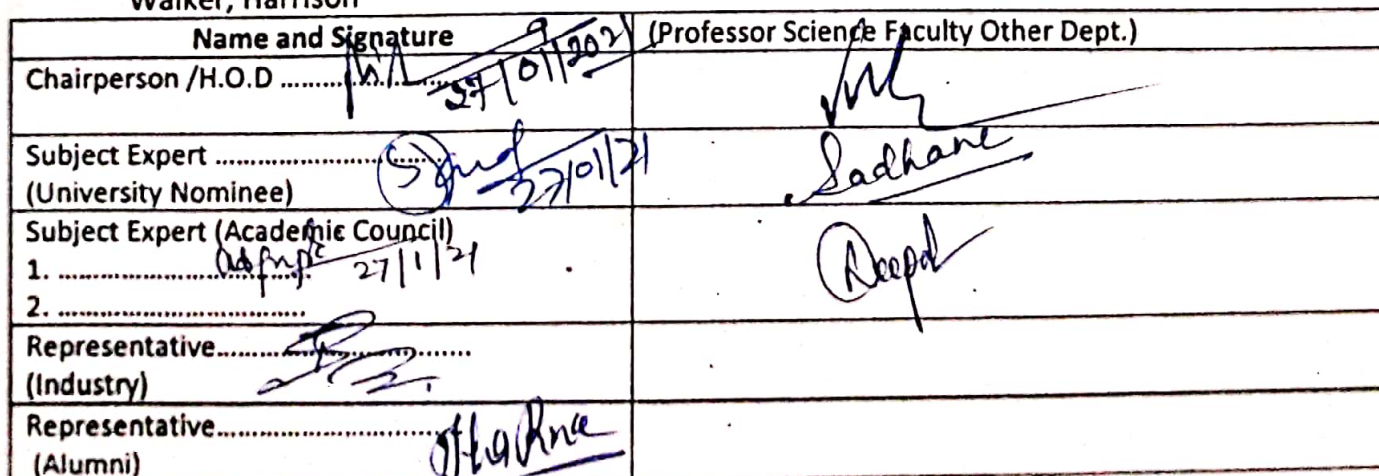 Walker, Harrison
Name and Signature (Professor Science Faculty Other Dept.)
Chairperson /H.O.D ........................ 27/01/2021
Subject Expert ................................ 27/01/21
(University Nominee) Sadhane
Subject Expert (Academic Council)
1. ................................. 27/1/21 Deepal
2. .................................
Representative.................................
(Industry)
Representative.................................
(Alumni)